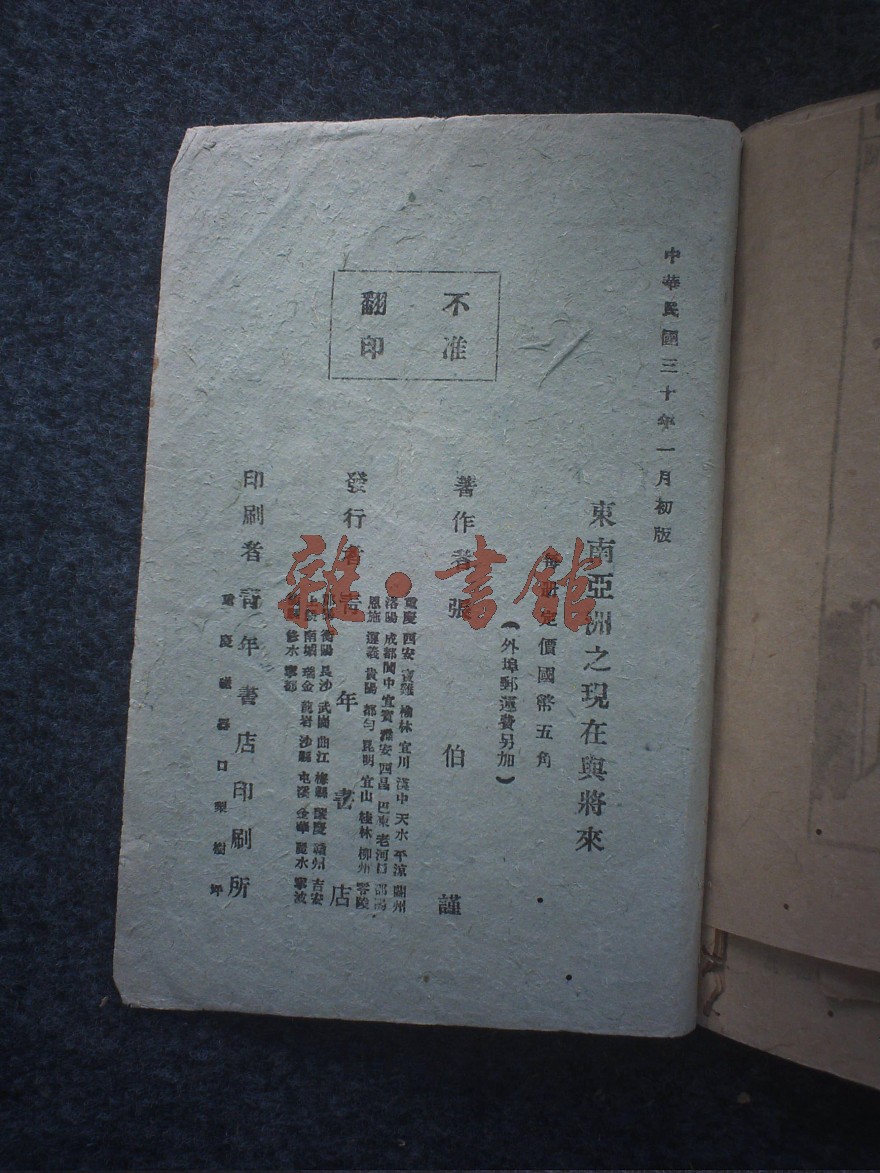 中華民國三十年一月初版
東南亞洲之現在與將來
每册定價國幣五角
（外埠郵運費另加）
著作者 張伯謹
不准
翻印
發行者 青年書店
重慶 西安 寶雞 榆林 宜川 漢中 天水 平涼 蘭州
洛陽 成都 閬中 宜賓 雅安 西昌 巴東 老河口
恩施 遵義 貴陽 都勻 昆明 宜山 桂林 柳州 零陵
衡陽 長沙 武岡 曲江 梅縣 贛州 吉安
上饒 南城 瑞金 龍岩 沙縣 屯溪 金華 麗水 寧波
修水 寧都
印刷者 青年書店印刷所
重慶磁器口梨樹坪
雜·書館